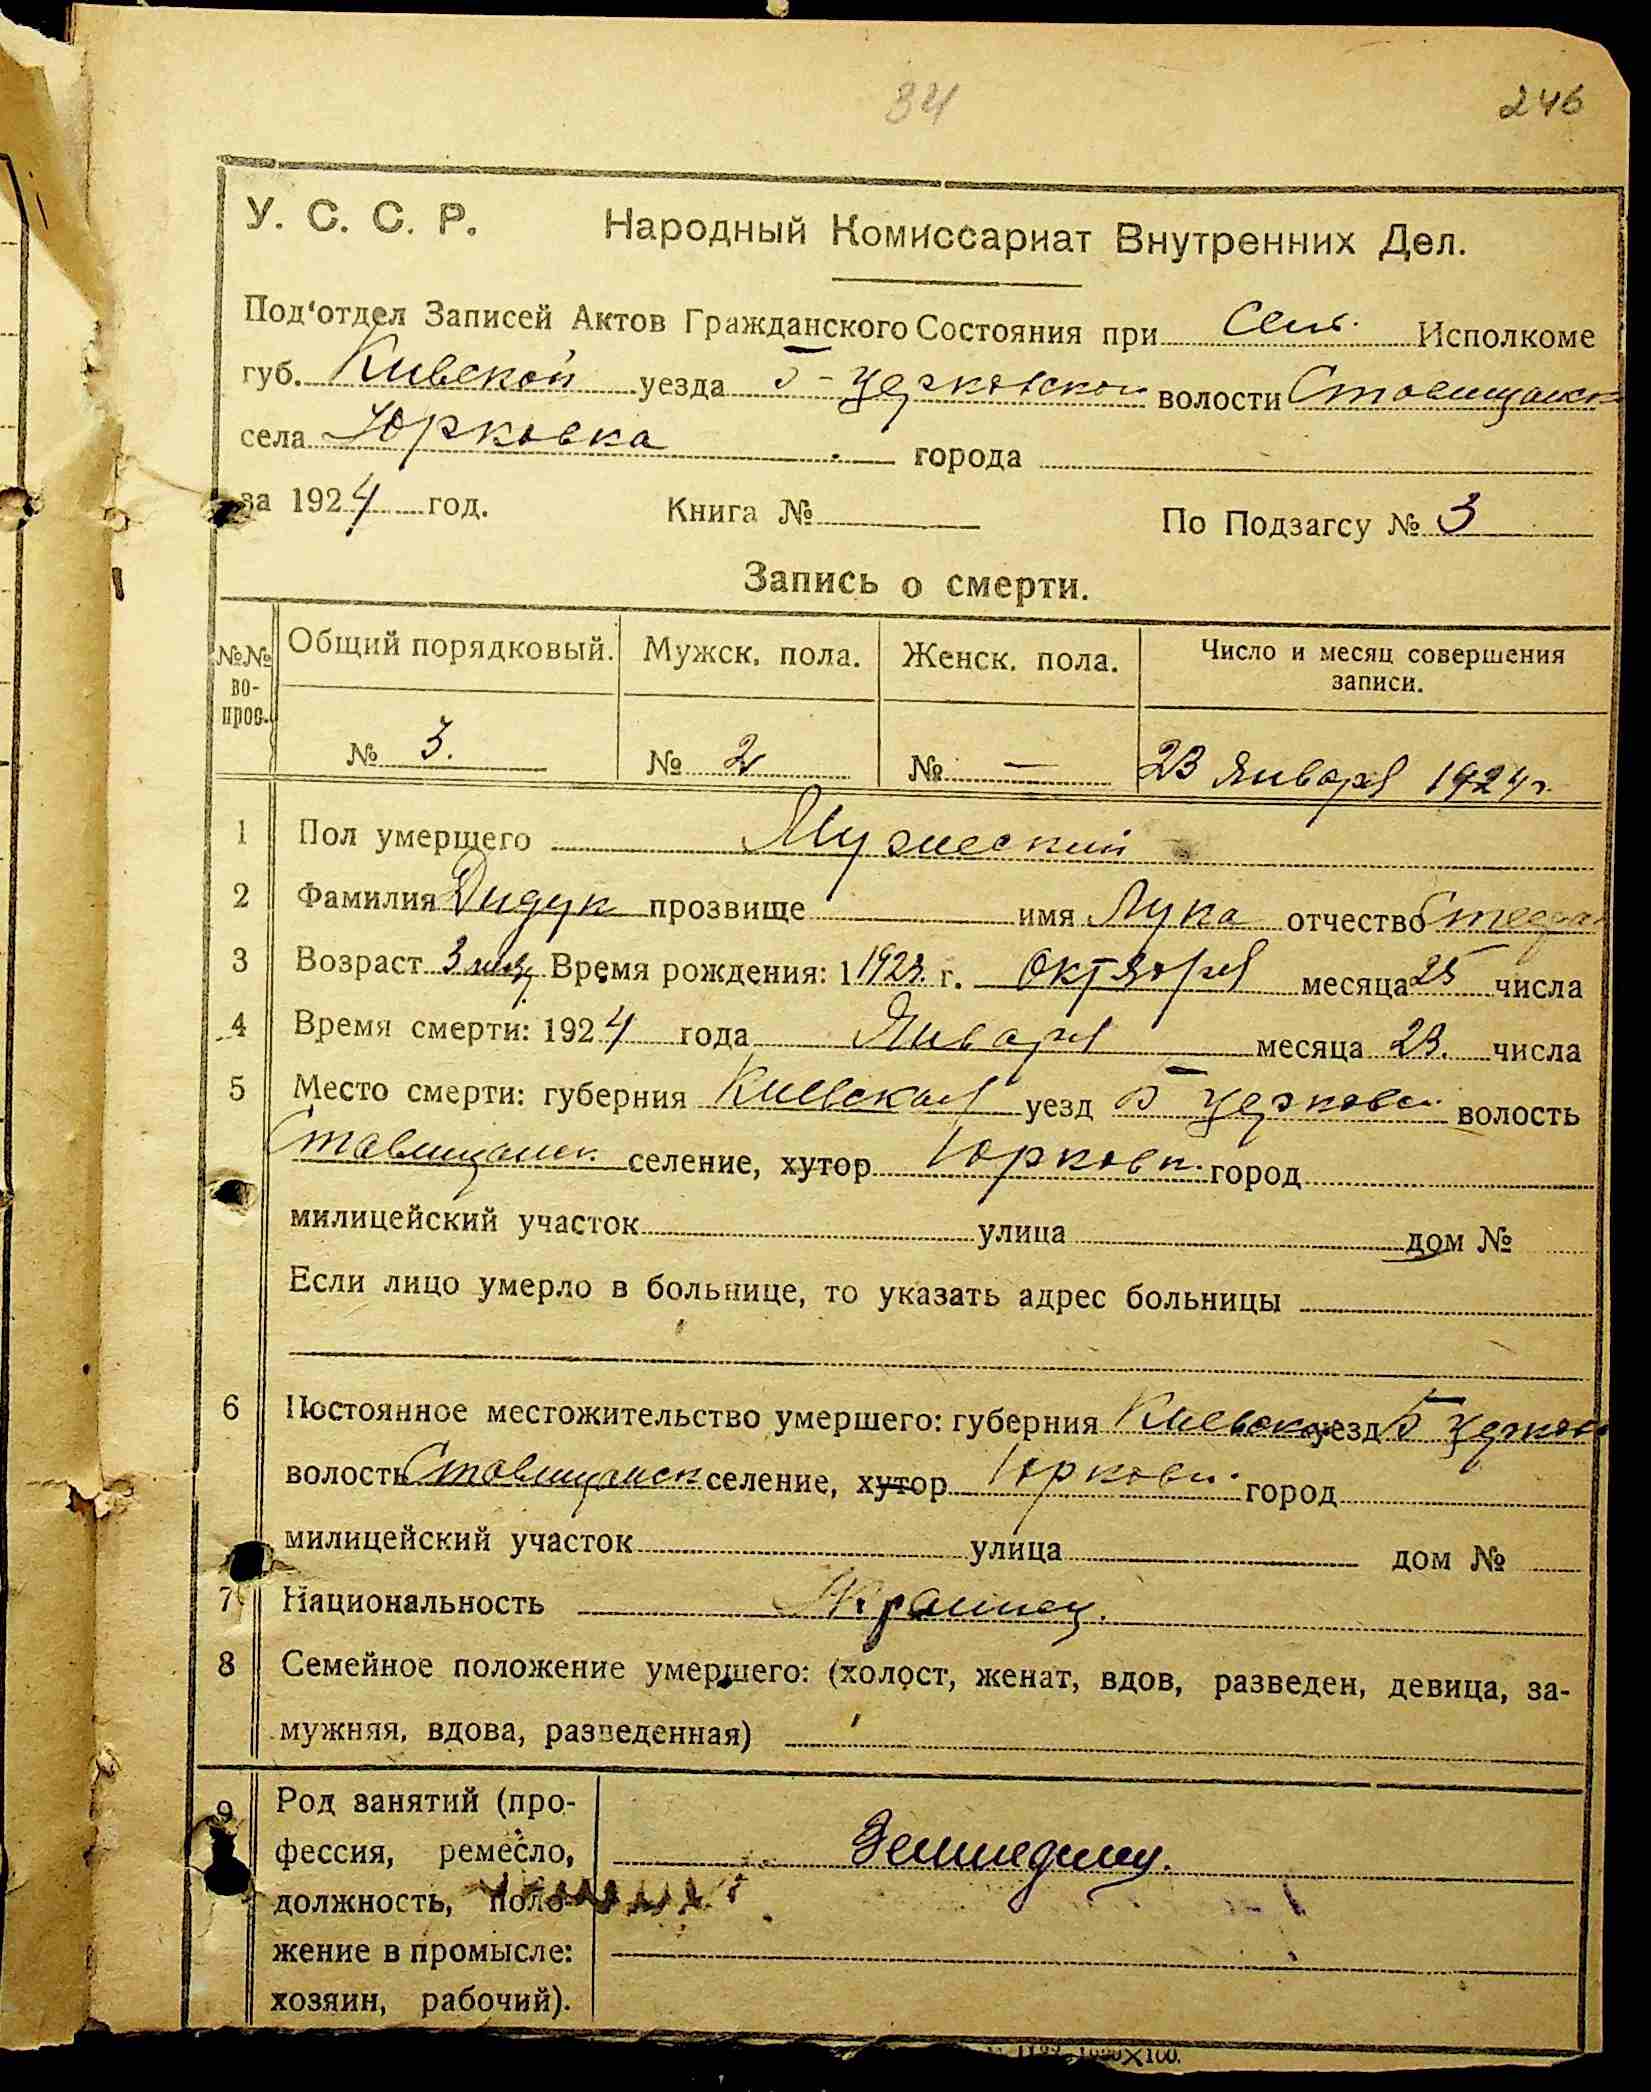 34
246
У. С. С. Р. Народный Комиссариат Внутренних Дел.
Под'отдел Записей Актов Гражданского Состояния при Сель. Исполкоме
губ. Киевской уезда Б-Церковской волости Ставищанск
села Юрковка города
за 1924 год. Книга № По Подзагсу № 3
Запись о смерти.
№№ во-прос. Общий порядковый. Мужск. пола. Женск. пола. Число и месяц совершения записи.
№ 3. № 2 № — 23 Января 1924 г.
1 Пол умершего Мужеский
2 Фамилия Дидук прозвище имя Лука отчество Стефан
3 Возраст 3 мес. Время рождения: 1 1923. г. Октября месяца 25 числа
4 Время смерти: 1924 года Января месяца 23. числа
5 Место смерти: губерния Киевская уезд Б Церковск. волость
Ставищанск. селение, хутор Юрковк. город
милицейский участок улица дом №
Если лицо умерло в больнице, то указать адрес больницы
6 Постоянное местожительство умершего: губерния Киевска уезд Б Церков
волость Ставищанск селение, хутор Юрковк. город
милицейский участок улица дом №
7 Национальность Украинец.
8 Семейное положение умершего: (холост, женат, вдов, разведен, девица, за-
мужняя, вдова, разведенная)
9 Род занятий (про-
фессия, ремесло, Земледелец.
должность, поло-
жение в промысле:
хозяин, рабочий).